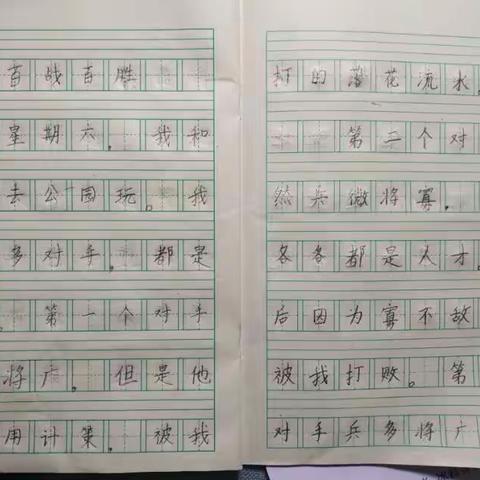 百战百胜
星期六，我和
去公园玩。我
多对手，都是
。第一个对手
将广，但是他
用计策，被我
打的落花流水，
第二个对
然兵微将寡，
各各都是人才，
后因为寡不敌
被我打败。第
对手兵多将广